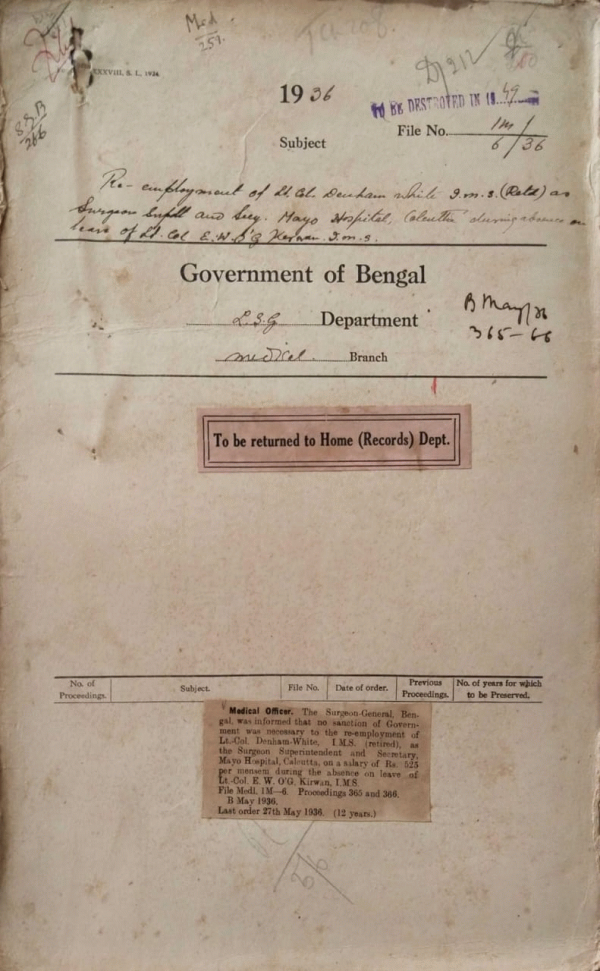 Med
259.
XXXVIII, S. I., 1934.
D/212
S.S.B
266
1936
TO BE DESTROYED IN 1949
Subject
File No. 1M/
6/36
Re-employment of Lt. Col. Denham white I.M.S. (Retd) as
Surgeon Supdt and Secy. Mayo Hospital, Calcutta during absence on
leave of Lt. Col E.W. O'G Kirwan I.M.S.
Government of Bengal
L.S.G Department
Medical. Branch
B May/36
365-66
To be returned to Home (Records) Dept.
No. of Proceedings. Subject. File No. Date of order. Previous Proceedings. No. of years for which to be Preserved.
Medical Officer. The Surgeon-General, Ben-
gal, was informed that no sanction of Govern-
ment was necessary to the re-employment of
Lt.-Col. Denham-White, I.M.S. (retired), as
the Surgeon Superintendent and Secretary,
Mayo Hospital, Calcutta, on a salary of Rs. 525
per mensem during the absence on leave of
Lt.-Col. E. W. O'G. Kirwan, I.M.S.
File Medl. 1M—6. Proceedings 365 and 366.
B May 1936.
Last order 27th May 1936. (12 years.)